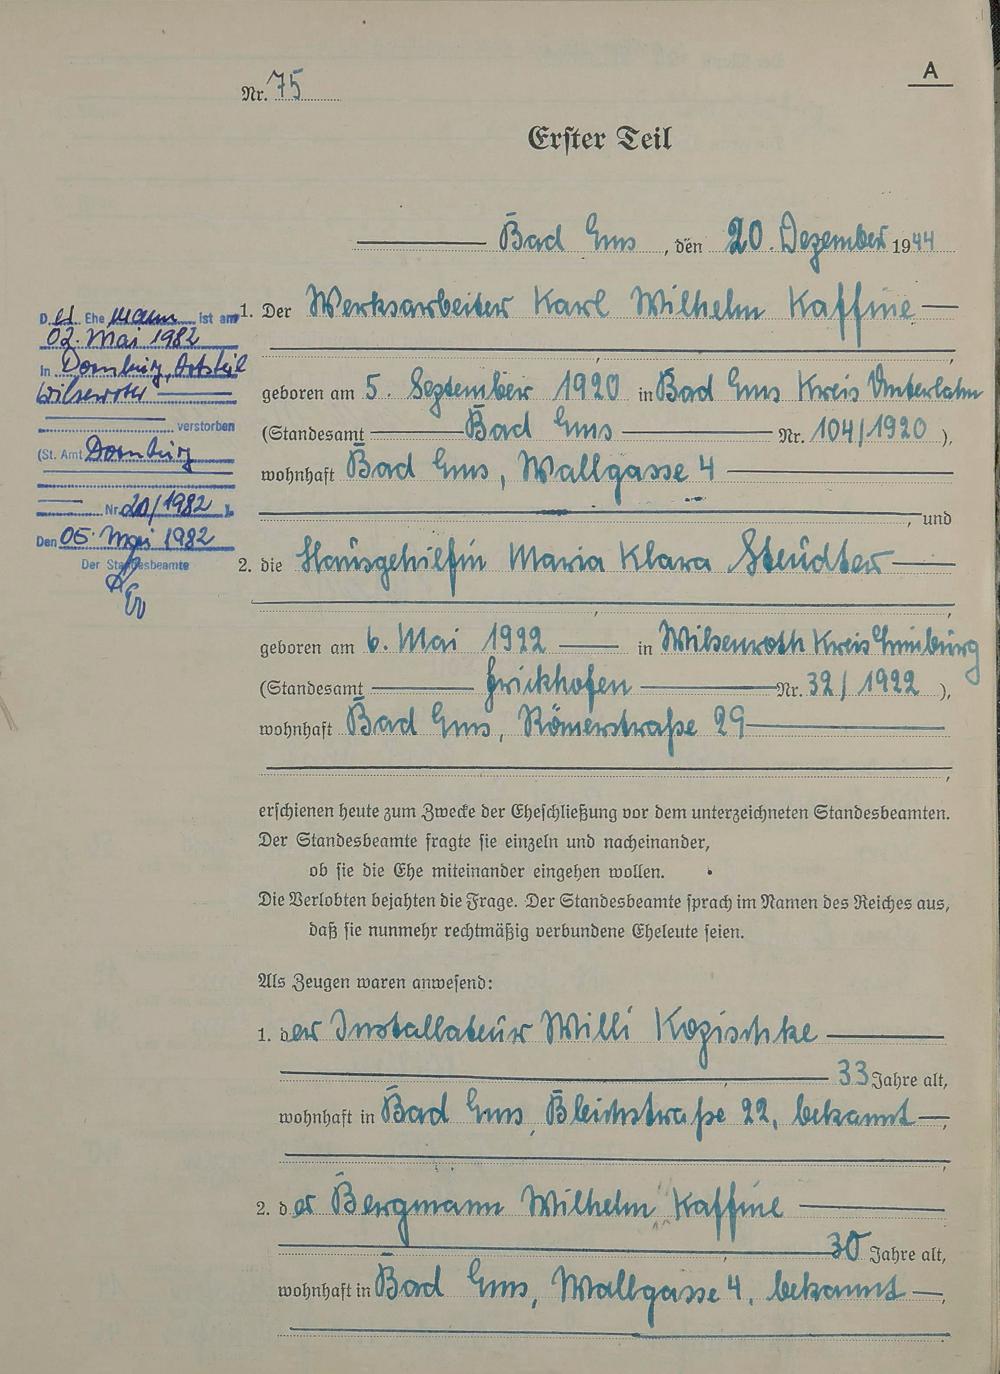 A
Nr. 75
Erster Teil
Bad Ems, den 20. Dezember 1944
1. Der Werksarbeiter Karl Wilhelm Kaffine
geboren am 5. September 1920 in Bad Ems Kreis Unterlahn
(Standesamt Bad Ems Nr. 104/1920),
wohnhaft Bad Ems, Wallgasse 4
, und
2. die Hausgehilfin Maria Klara Steudter
,
geboren am 6. Mai 1922 in Wilsenroth Kreis Limburg
(Standesamt Frickhofen Nr. 32/1922),
wohnhaft Bad Ems, Römerstraße 29
,
erschienen heute zum Zwecke der Eheschließung vor dem unterzeichneten Standesbeamten.
Der Standesbeamte fragte sie einzeln und nacheinander,
ob sie die Ehe miteinander eingehen wollen.
Die Verlobten bejahten die Frage. Der Standesbeamte sprach im Namen des Reiches aus,
daß sie nunmehr rechtmäßig verbundene Eheleute seien.
Als Zeugen waren anwesend:
1. der Installateur Willi Kozischke
33 Jahre alt,
wohnhaft in Bad Ems, Bleichstraße 22, bekannt
,
2. der Bergmann Wilhelm Kaffine
30 Jahre alt,
wohnhaft in Bad Ems, Wallgasse 4, bekannt
D er Ehe mann ist am
02. Mai 1982
In Dornburg, Ortsteil
Wilsenroth
verstorben
(St. Amt Dornburg
Nr. 20/1982).
Den 05. Mai 1982
Der Standesbeamte